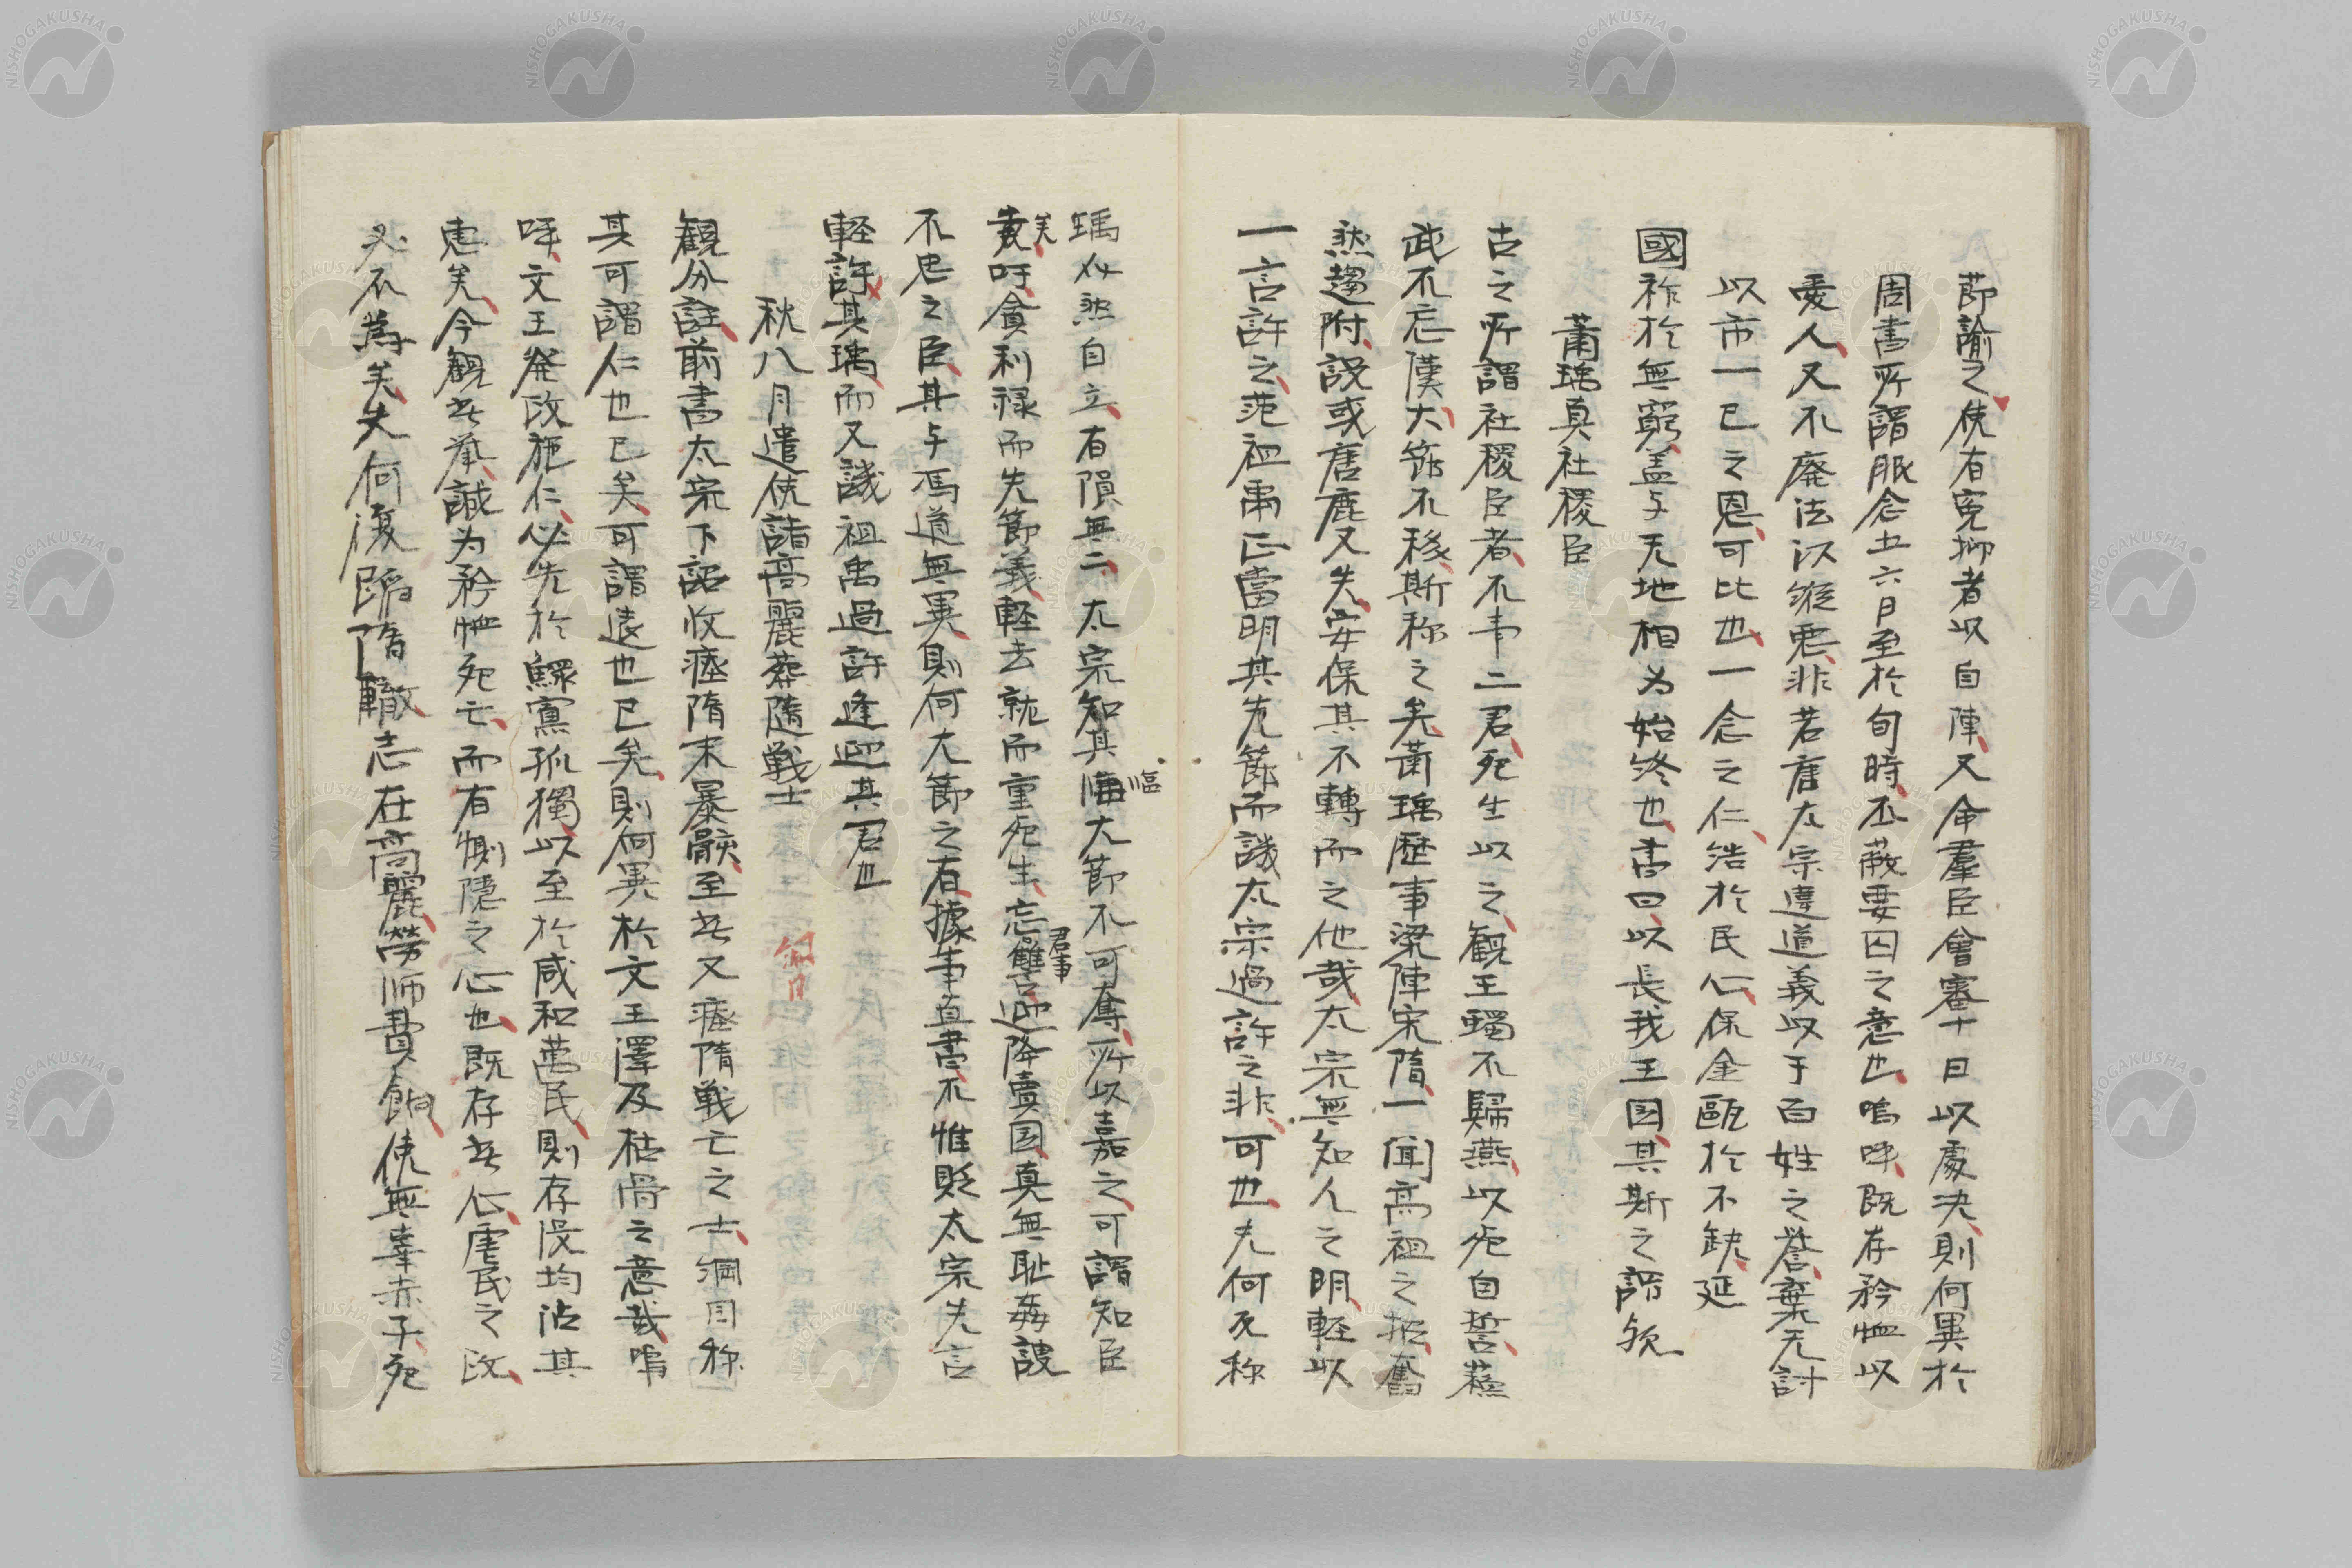 節諭之使有寃抑者以自陳又命羣臣會審十日以處决則何異於
周書所謂服念五六日至於旬時丕蔽要囚之意也嗚呼既存矜恤以
愛人又不廢法以縱悪非若唐太宗違道義以于百姓之誉棄天討
以市一已之恩可比也一念之仁浩於民心保金甌於不缺延
國祚於無窮盖与天地相为始终也書曰以長我王国其斯之謂欤
蕭瑀真社稷臣
古之所謂社稷臣者不事二君死生以之觀王蠋不歸燕以死自誓蘓
武不忘漢大節不移斯称之矣蕭瑀歴事梁陳宋隋一聞高祖之招奮
然趨附説或唐鹿又失安保其不轉而之他哉太宗無知人之明軽以
一言許之范祖禹正當明其先節而譏太宗過許之非可也夫何反称
瑀以然自立有隕無二太宗知其臨大節不可奪所以嘉之可謂知臣
矣吁貪利禄而失節義軽去就而重死生忘君事讐迎降賣国真無耻姦諛
不忠之臣其与馮道無異則何大節之有據事直書不惟貶太宗失言
軽許其瑀而又譏祖禹過許逢迎其君也
秋八月遣使詣高麗葬隨戦士
綱目
觀分註前書太宗下詔收瘞隋末暴骸至此又瘞隋戦亡之士綱目称
其可謂仁也已矣可謂遠也已矣則何異於文王澤及枯骨之意哉嗚
呼文王発政施仁必先於鰥寡孤獨以至於咸和萬民則存没均沾其
恵矣今觀此举誠为矜恤死亡而有惻隠之心也既存此心虐民之政
必不為矣夫何復蹈隋轍志在高麗勞师費餉使無辜赤子死